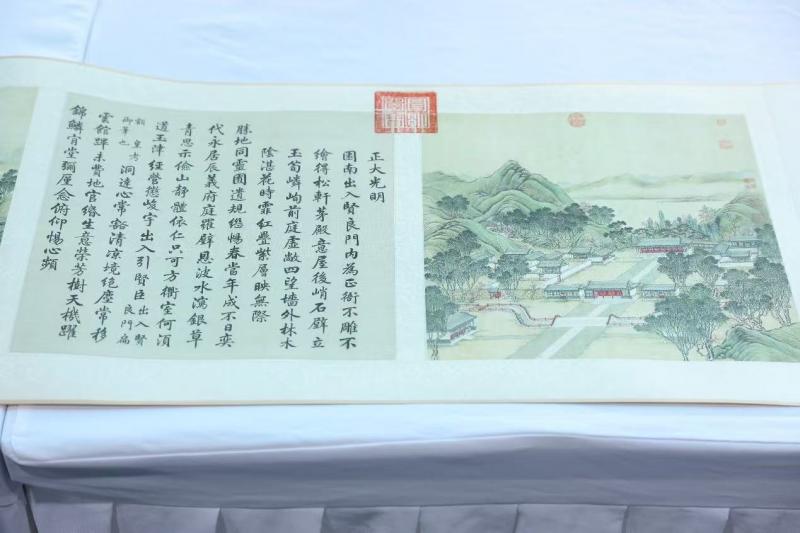 正大光明
園南出入賢良門內為正衙不雕不
繪得松軒茅殿意屋後峭石壁立
玉筍嶙峋前庭虛敞四望墻外林木
陰湛花時霏紅疊紫層映無際
勝地同靈囿遺規繼暢春當年成不日奕
代永居辰義府庭羅璧恩波水瀉銀草
青思示儉山靜體依仁只可方衢室何須
道玉津經營懲峻宇出入引賢臣出入賢良門扁
額皇考御筆也洞達心常豁清涼境絕塵常移
雲館蹕未費地官緡生意榮芳樹天機躍
錦鱗肯堂彌厪念俯仰惕心頻